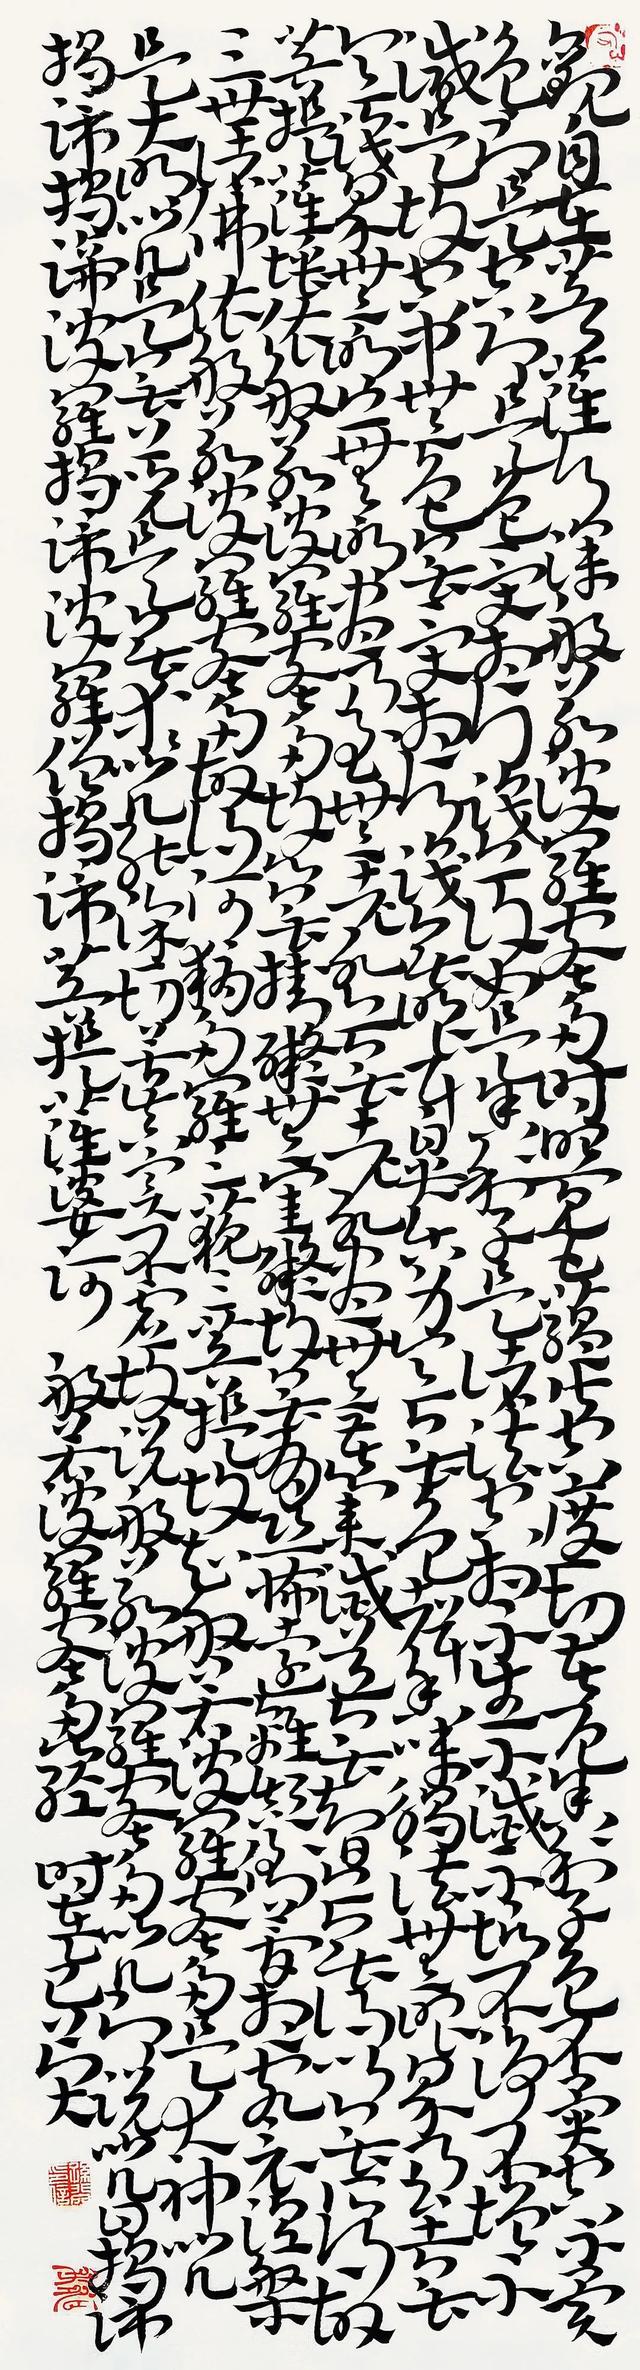 觀自在菩薩行深般若波羅蜜多時照見五蘊皆空度一切苦厄舍利子色不異空空不異
色色即是空空即是色受想行識亦復如是舍利子是諸法空相不生不滅不垢不淨不增不
減是故空中無色無受想行識無眼耳鼻舌身意無色聲香味觸法無眼界乃至無意
識界無無明亦無無明盡乃至無老死亦無老死盡無苦集滅道無智亦無得以無所得故
菩提薩埵依般若波羅蜜多故心無罣礙無罣礙故無有恐怖遠離顛倒夢想究竟涅槃
三世諸佛依般若波羅蜜多故得阿耨多羅三藐三菩提故知般若波羅蜜多是大神咒
是大明咒是無上咒是無等等咒能除一切苦真實不虛故說般若波羅蜜多咒即說咒曰揭諦
揭諦揭諦波羅揭諦波羅僧揭諦菩提薩婆訶 般若波羅蜜多心經 時在